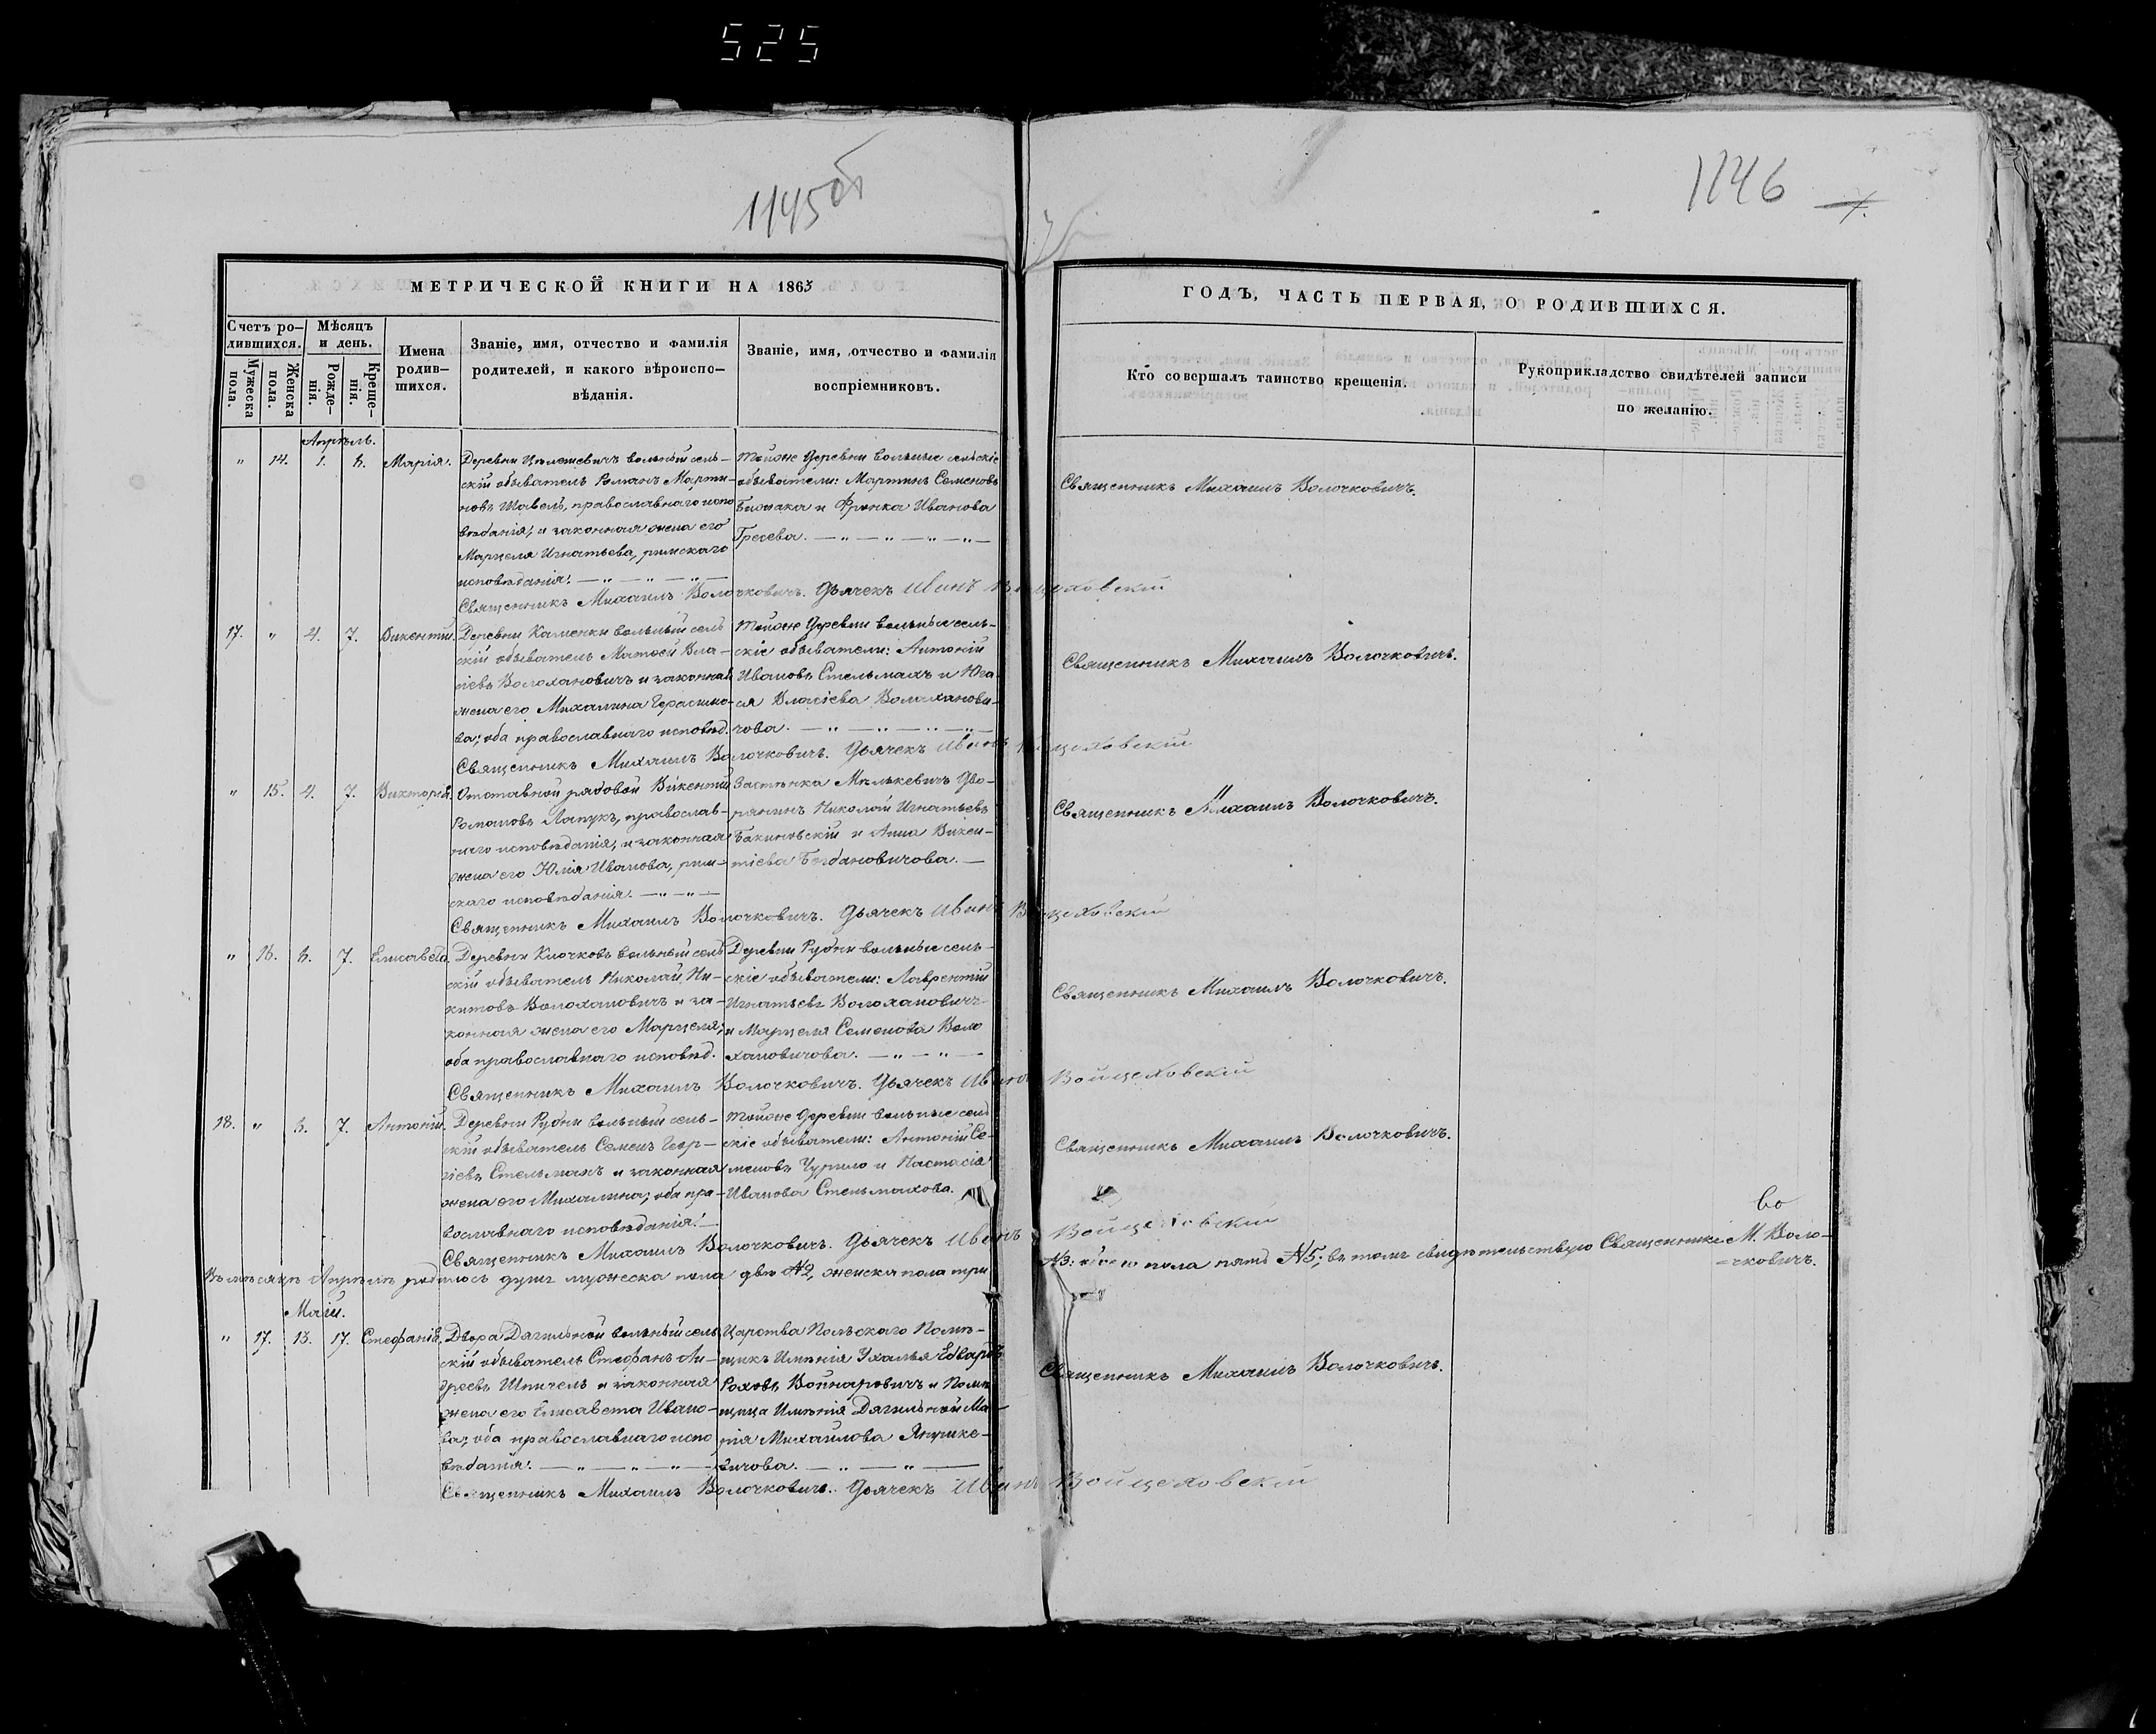 525
1145 об
1146
7.
МЕТРИЧЕСКОЙ КНИГИ НА 1865
ГОДЪ, ЧАСТЬ ПЕРВАЯ, О РОДИВШИХСЯ.
Счетъ ро-
дившихся.
Мужеска
пола.
Женска
пола.
Мѣсяцъ
и день.
Рожде-
нія.
Креще-
нія.
Имена
родив-
шихся.
Званіе, имя, отчество и фамилія
родителей, и какого вѣроиспо-
вѣданія.
Званіе, имя, отчество и фамилія
воспріемниковъ.
Кто совершалъ таинство крещенія.
Рукоприкладство свидѣтелей записи
по желанію.
Апрѣль.
" 14. 1. 6. Марія.
Деревни вольный сель-
скій обыватель Романъ Марти-
новъ Шавель, православнаго испо
вѣданія, и законная жена его
Марцеля Игнатьева, римскаго
исповѣданія.
Тойже деревни вольные сельскіе
обыватели: Мартинъ Семеновъ
и Франка Иванова
Священникъ Михаилъ Волочковичъ.
Священникъ Михаилъ Волочковичъ. Дьячекъ Иванъ Войцеховскій
17. " 4. 7. Викентій.
Деревни Каменки вольный сель
скій обыватель Матѳей Вла-
сіевъ Волохановичъ и законная
жена его Михалина Герасимо-
ва; оба православнаго исповѣд.
Тойже деревни вольные сель-
скіе обыватели: Антоній
Ивановъ Стельмахъ и Юга-
ся Власіева Волоханови-
чова.
Священникъ Михаилъ Волочковичъ.
Священникъ Михаилъ Волочковичъ. Дьячекъ Иванъ Войцеховскій
" 15. 4. 7. Викторія.
Отставной рядовой Викентій
Романовъ Лапукъ, православ-
наго исповѣданія, и законная
жена его Юлія Иванова, рим-
скаго исповѣданія.
Застѣнка Мѣлькевичъ дво-
рянинъ Николай Игнатьевъ
Бакиновскій и Анна Викен-
тіева Богдановичова.
Священникъ Михаилъ Волочковичъ.
Священникъ Михаилъ Волочковичъ. Дьячекъ Иванъ Войцеховскій
" 16. 6. 7. Елисавета.
Деревни Клочковъ вольный сель
скій обыватель Николай Ни-
китовъ Волохановичъ и за-
конная жена его Марцеля;
оба православнаго исповѣд.
Деревни Рудни вольные сель-
скіе обыватели: Лаврентій
Игнатьевъ Волохановичъ
и Марцеля Семенова Воло
хановичова.
Священникъ Михаилъ Волочковичъ.
Священникъ Михаилъ Волочковичъ. Дьячекъ Иванъ Войцеховскій
18. " 6. 7. Антоній.
Деревни Рудни вольный сель-
скій обыватель Семенъ Геор-
гіевъ Стельмахъ и законная
жена его Михалина; оба пра-
вославнаго исповѣданія.
Тойже деревни вольные сель
скіе обыватели: Антоній Се-
меновъ Чурило и Настасія
Иванова Стельмахова.
Священникъ Михаилъ Волочковичъ.
Священникъ Михаилъ Волочковичъ. Дьячекъ Иванъ Войцеховскій
Въ мѣсяцѣ Апрѣлѣ родилось душъ мужеска пола двѣ №2, женска пола три
№3: обоего пола пять №5; въ томъ свидѣтельствую Священникъ М. Воло-
чковичъ.
Маій.
" 17. 13. 17. Стефанія.
Двора Дягильной вольный сель
скій обыватель Стефанъ Ан-
дреевъ Шпилель и законная
жена его Елисавета Ивано-
ва; оба православнаго испо
вѣданія.
Царства Польскаго Помѣ-
щикъ Имѣнія Ухалья Едвардъ
Роховъ Войнаровичъ и Помѣ
щица Имѣнія Дягильной Ма-
рія Михайлова Янушке-
вичова.
Священникъ Михаилъ Волочковичъ.
Священникъ Михаилъ Волочковичъ. Дьячекъ Иванъ Войцеховскій